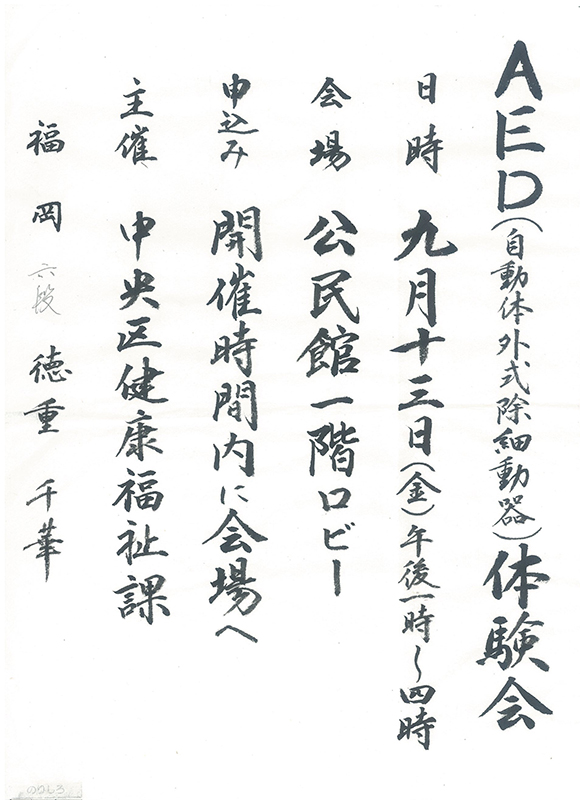 AED（自動体外式除細動器）体験会
日時　九月十三日（金）午後一時～四時
会場　公民館一階ロビー
申込み　開催時間内に会場へ
主催　中央区健康福祉課
福岡　六段　徳重　千華
のりしろ